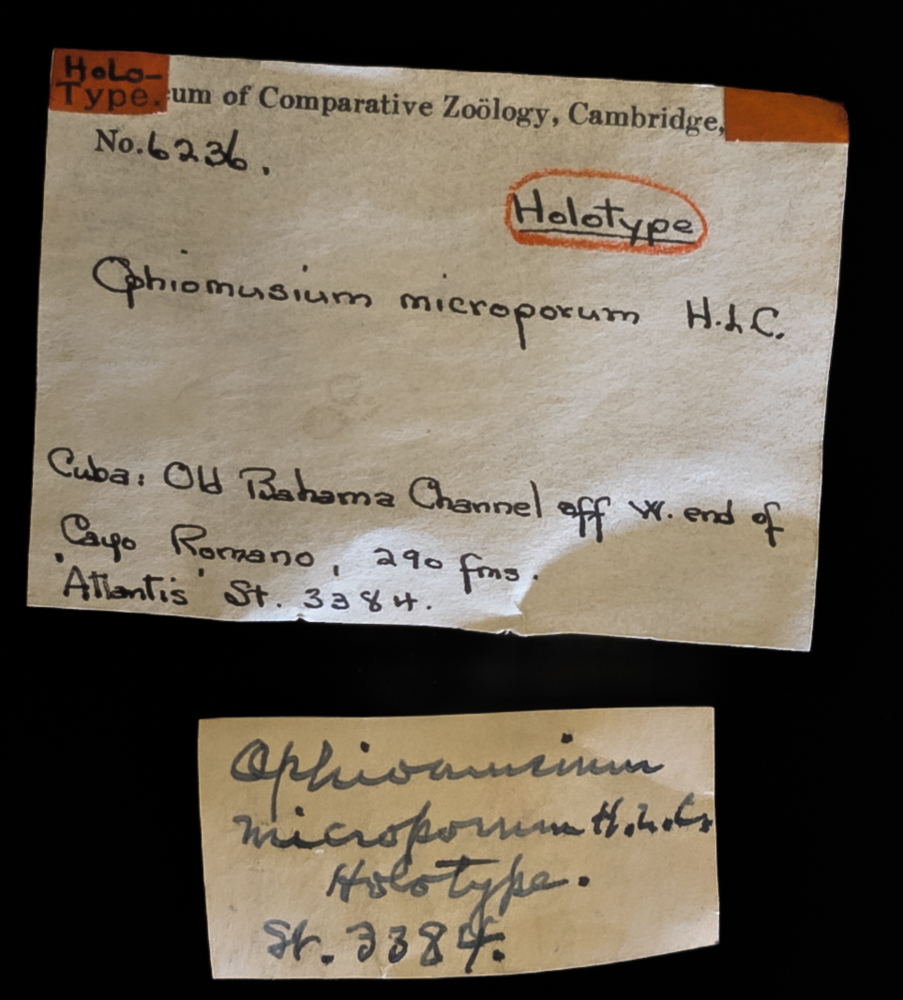 Holo-
Type.
um of Comparative Zoölogy, Cambridge,
No. 6236.
Holotype
Ophiomusium microporum H.L.C.
Cuba: Old Bahama Channel off W. end of
Cayo Romano, 290 fms.
'Atlantis' St. 3384.
Ophiomusium
microporum H.L.C.
Holotype.
St. 3384.